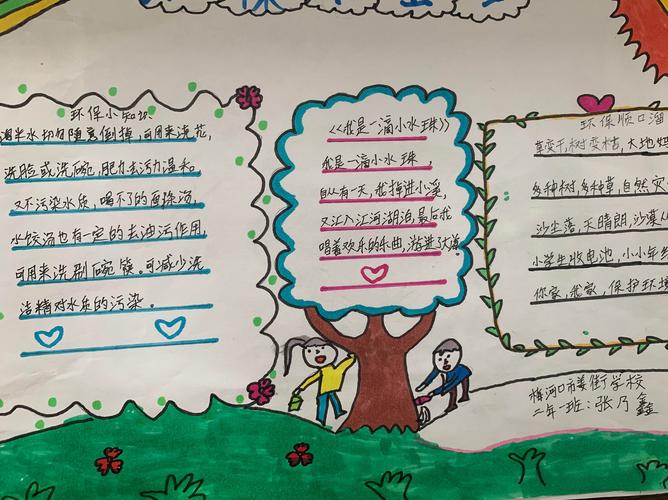 环保小知识:
水切勿随意倒掉,可用来浇花,
洗脸或洗碗,肥力去污力温和
又不污染水质,喝不了的面汤,
水饺汤也有一定的去油污作用,
可用来洗刷碗筷。可减少洗
洁精对水质的污染。
《我是一滴小水珠》
我是一滴小水珠,
自从有一天,我掉进小溪,
又汇入江河湖泊,最后我
唱着欢乐的乐曲,游进了大海。
环保顺口溜
变干,树变枯,大地
多种树,多种草,自然灾
沙尘落,天晴朗,沙漠
小学生收电池,小小年
你家,我家,保护环境
梅河口市姜街学校
二年一班:张乃鑫